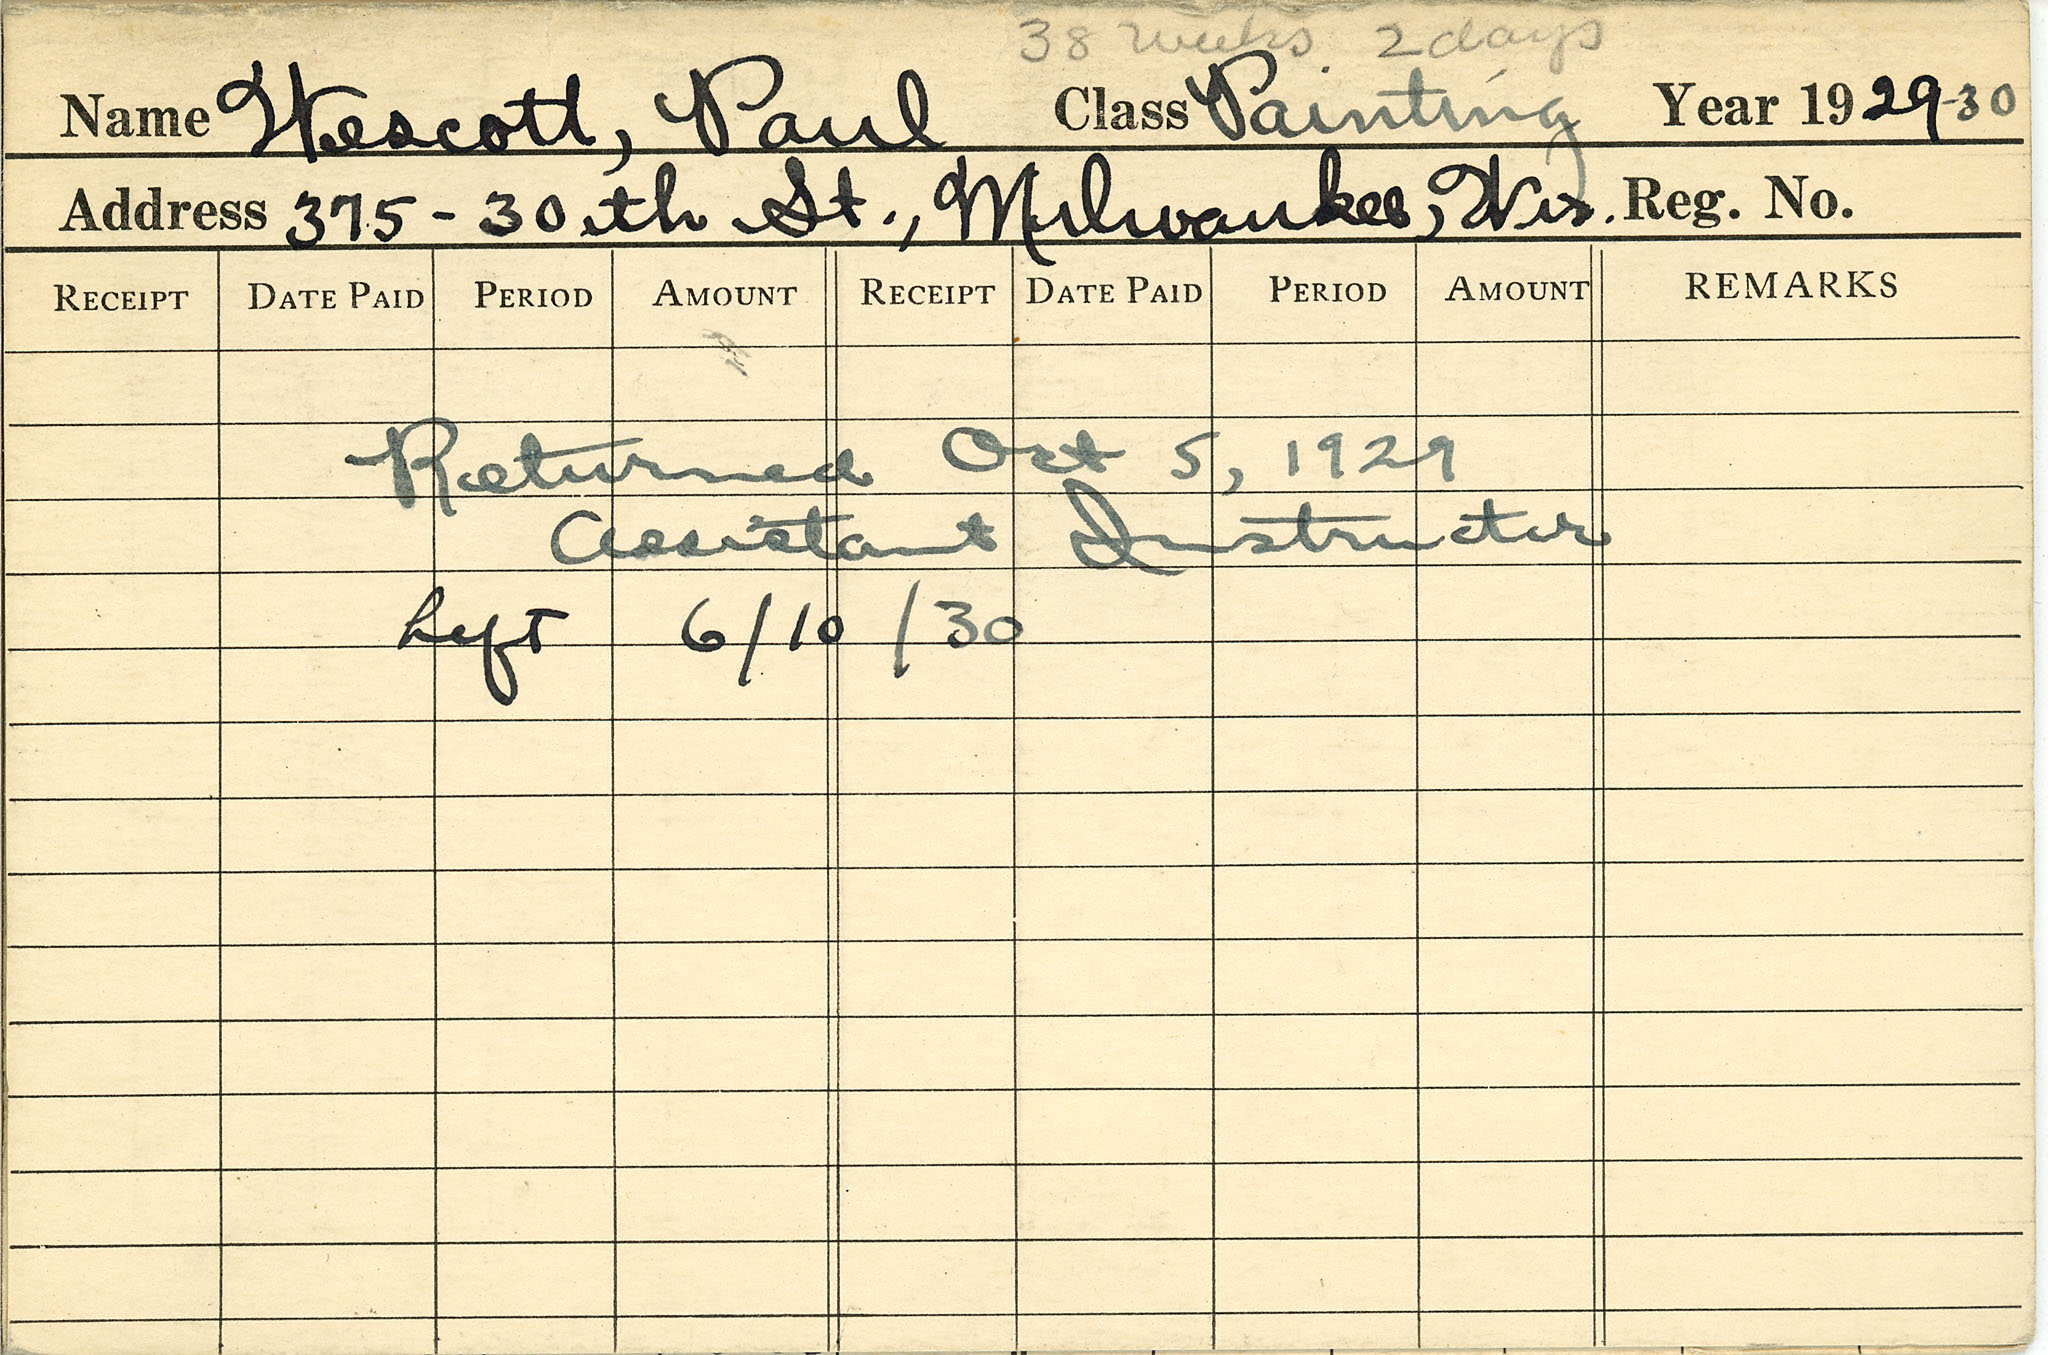 38 weeks. 2 days
Name Wescott, Paul Class Painting Year 1929-30
Address 375-30th St., Milwaukee, Wis. Reg. No.
RECEIPT DATE PAID PERIOD AMOUNT RECEIPT DATE PAID PERIOD AMOUNT REMARKS
Returned Oct 5, 1929
Assistant Instructor
Left 6/10/30